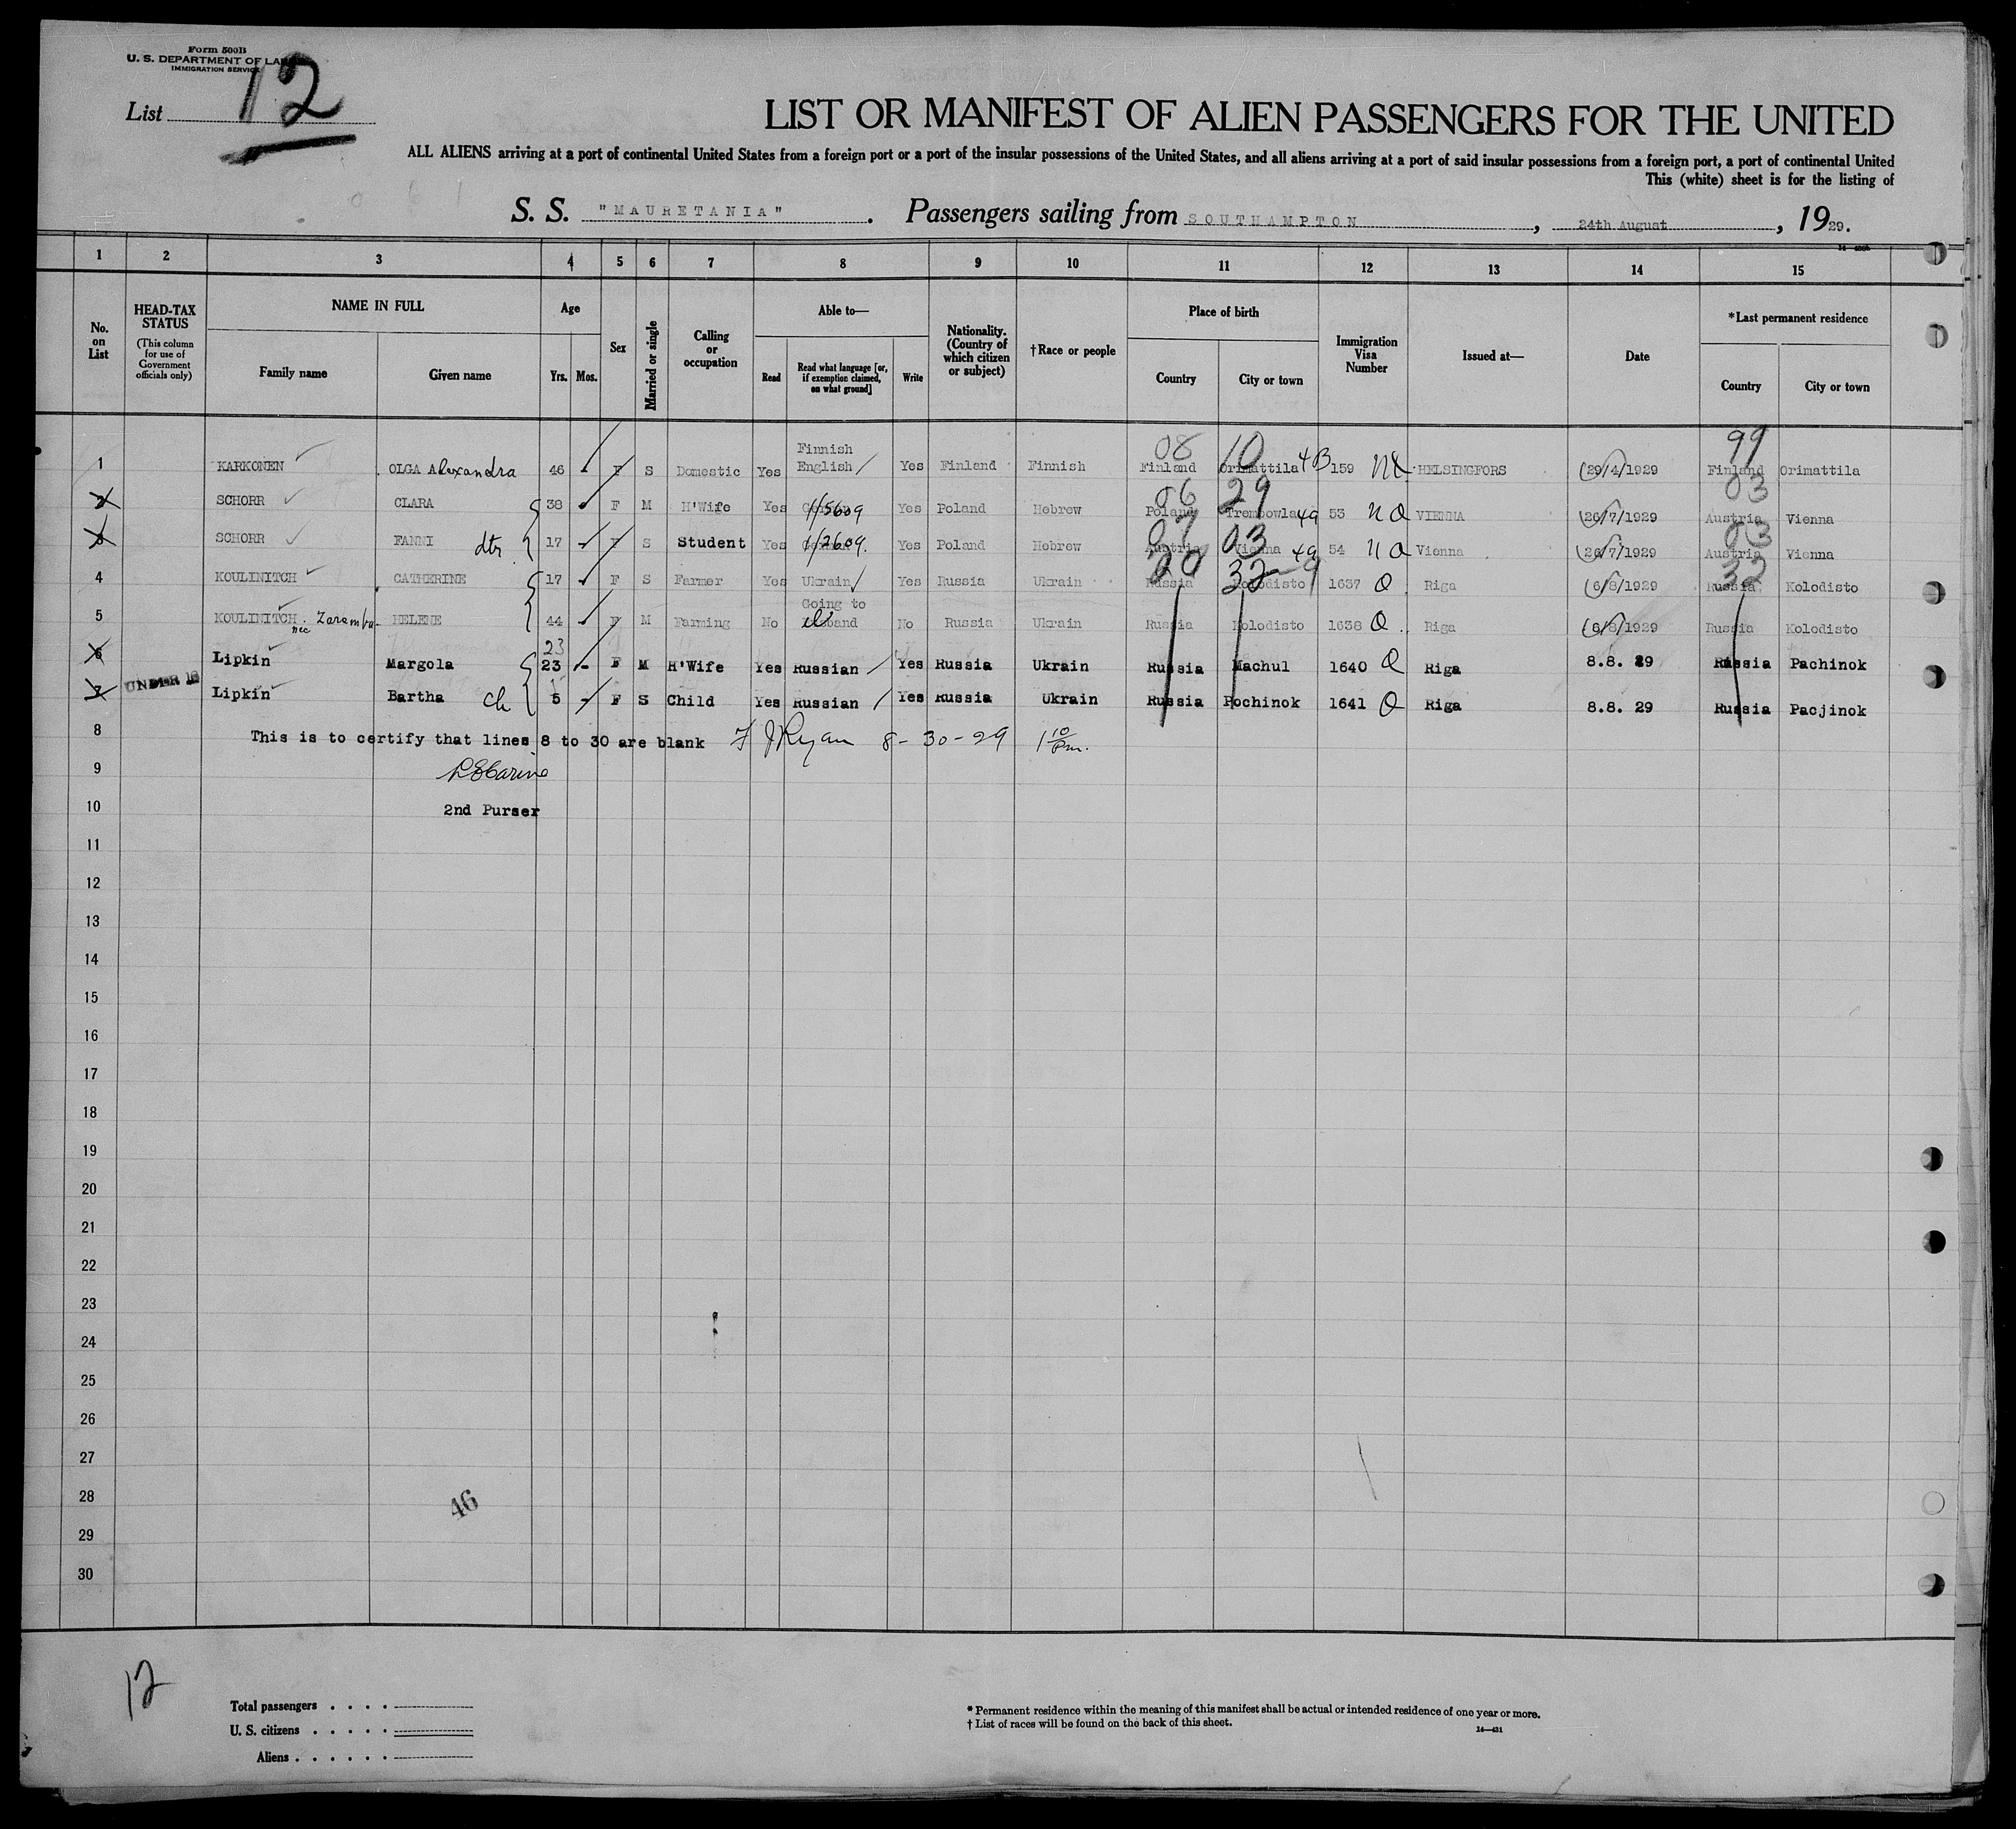 Form 500B
U. S. DEPARTMENT OF LA
IMMIGRATION SERVICE
List 12
LIST OR MANIFEST OF ALIEN PASSENGERS FOR THE UNITED
ALL ALIENS arriving at a port of continental United States from a foreign port or a port of the insular possessions of the United States, and all aliens arriving at a port of said insular possessions from a foreign port, a port of continental United
This (white) sheet is for the listing of
S. S. "MAURETANIA". Passengers sailing from SOUTHAMPTON, 24th August, 1929.
1 2 3 4 5 6 7 8 9 10 11 12 13 14 15
No. on List
HEAD-TAX STATUS (This column for use of Government officials only)
NAME IN FULL Family name Given name
Age Yrs. Mos.
Sex
Married or single
Calling or occupation
Able to— Read Read what language [or, if exemption claimed, on what ground] Write
Nationality. (Country of which citizen or subject)
†Race or people
Place of birth Country City or town
Immigration Visa Number
Issued at—
Date
*Last permanent residence Country City or town
08 10 99
1 KARKONEN OLGA Alexandra 46 F S Domestic Yes Finnish English Yes Finland Finnish Finland Orimattila 4B 159 HELSINGFORS 29/4/1929 Finland Orimattila
06 29 03
2 SCHORR CLARA 38 F M H'Wife Yes German 1/5609 Yes Poland Hebrew Poland Trembowla 49 53 NQ VIENNA 26/7/1929 Austria Vienna
07 03 03
3 SCHORR FANNI dtr 17 F S Student Yes German 1/3609. Yes Poland Hebrew Austria Vienna 49 54 NQ Vienna 26/7/1929 Austria Vienna
20 32-9 32
4 KOULINITCH CATHERINE 17 F S Farmer Yes Ukrain Yes Russia Ukrain Russia Kolodisto 1637 Q Riga 6/8/1929 Russia Kolodisto
5 KOULINITCH nee Zaremba HELENE 44 F M Farming No Going to husband No Russia Ukrain Russia Kolodisto 1638 Q Riga 6/8/1929 Russia Kolodisto
23
6 Lipkin Margola 23 - F M H'Wife Yes Russian Yes Russia Ukrain Russia Machul 1640 Q Riga 8.8. 29 Russia Pachinok
7 UNDER 16 Lipkin Bartha ch 5 - F S Child Yes Russian Yes Russia Ukrain Russia Pochinok 1641 Q Riga 8.8. 29 Russia Pacjinok
8 This is to certify that lines 8 to 30 are blank F J Ryan 8-30-29 1 10 Pm.
9
10 2nd Purser
11
12
13
14
15
16
17
18
19
20
21
22
23
24
25
26
27
28 46
29
30
12
Total passengers . . . .
U. S. citizens . . . . .
Aliens . . . . . .
* Permanent residence within the meaning of this manifest shall be actual or intended residence of one year or more.
† List of races will be found on the back of this sheet.
14—431